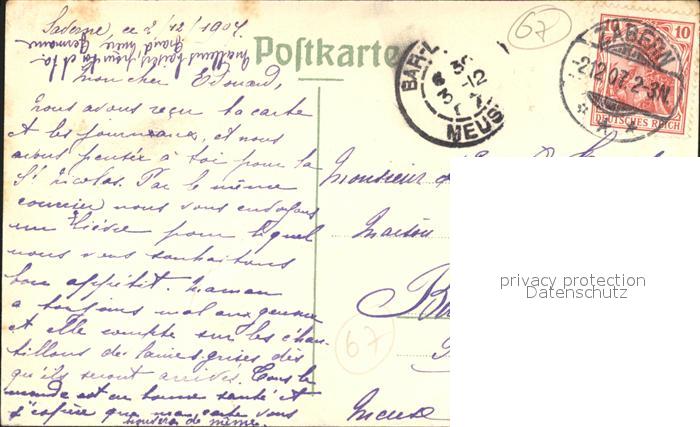 Saverne, ce 2/12/1907
Meilleurs baisers
grand'mère
Germaine
Postkarte
Mon cher Edouard,
Nous avons reçu ta carte
et les journaux, et nous
avons pensée à toi pour la
St Nicolas. Par le même
courrier nous vous envoyons
un Lièvre pour lequel
nous vous souhaitons
bon appétit. Maman
a toujours mal aux genoux
et elle compte sur les échan-
tillons de laines grises dès
qu'ils seront arrivés. Tous le
monde est en bonne santé et
j'espère que ma carte vous
trouvera de même.
67
BAR-L
3
12
MEUS
ZABERN
-2.12.07.2-3N.
10
DEUTSCHES REICH
Monsieur
Maison
Meuse
67
privacy protection
Datenschutz